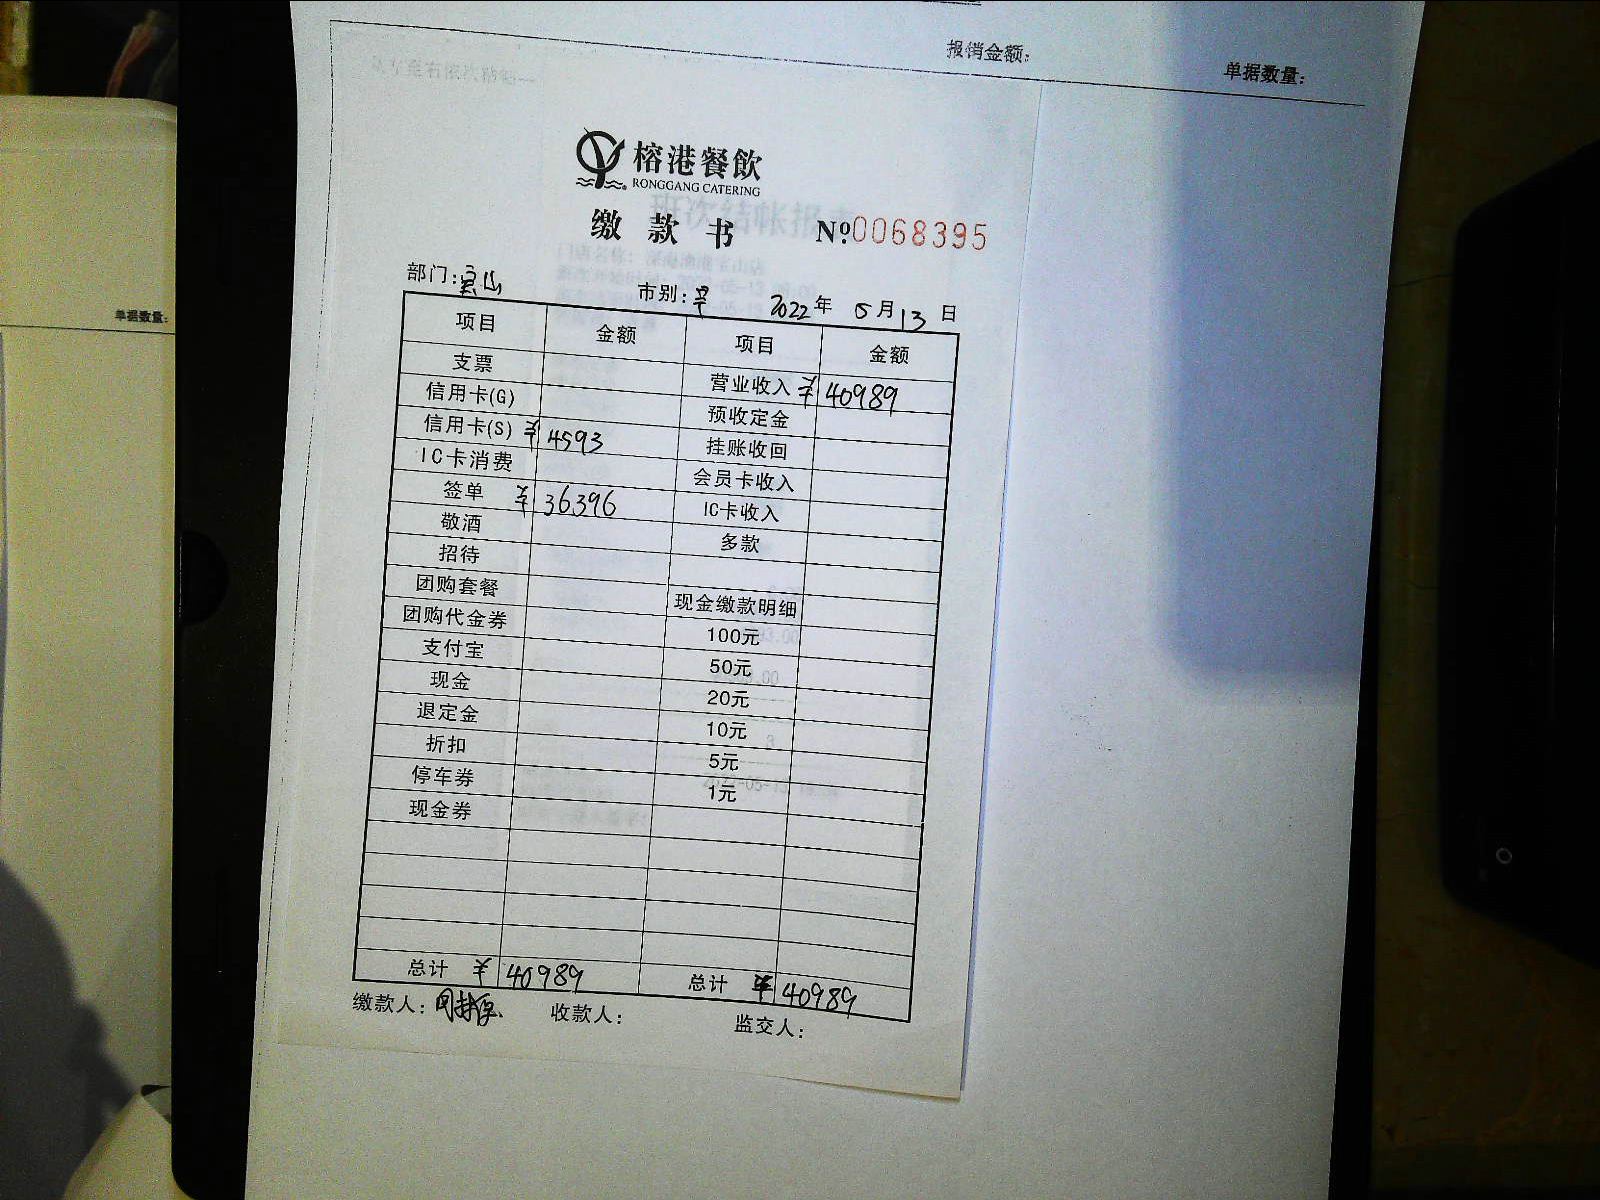 报销金额:
单据数量:
单据数量:
榕港餐飲
RONGGANG CATERING
缴款书 №0068395
部门:宝山 市别:早 2022年 5月13日
项目 金额 项目 金额
支票 营业收入 ¥40989
信用卡(G) 预收定金
信用卡(S) ¥4593 挂账收回
IC卡消费 会员卡收入
签单 ¥36396 IC卡收入
敬酒 多款
招待
团购套餐 现金缴款明细
团购代金券 100元
支付宝 50元
现金 20元
退定金 10元
折扣 5元
停车券 1元
现金券
总计 ¥40989 总计 ¥40989
缴款人: 收款人: 监交人: